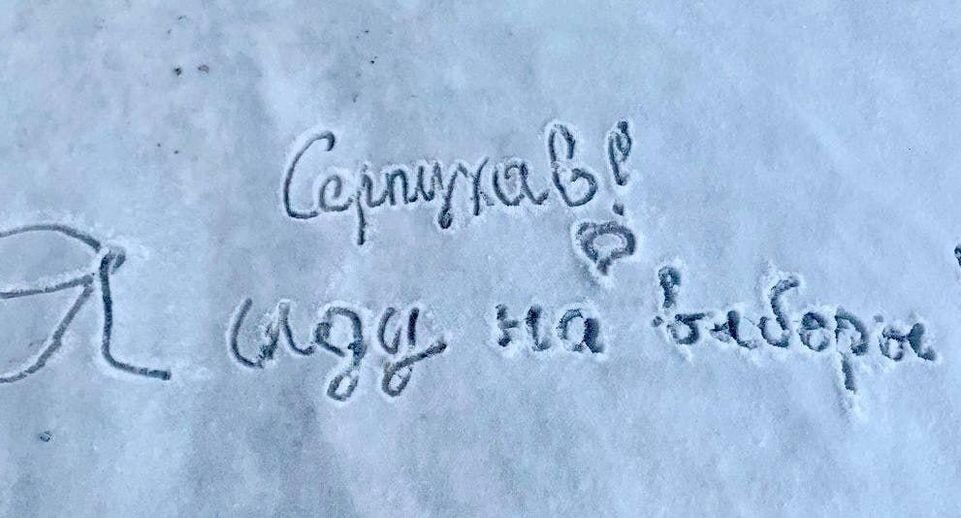 Серпухав!
Я иду на выборы